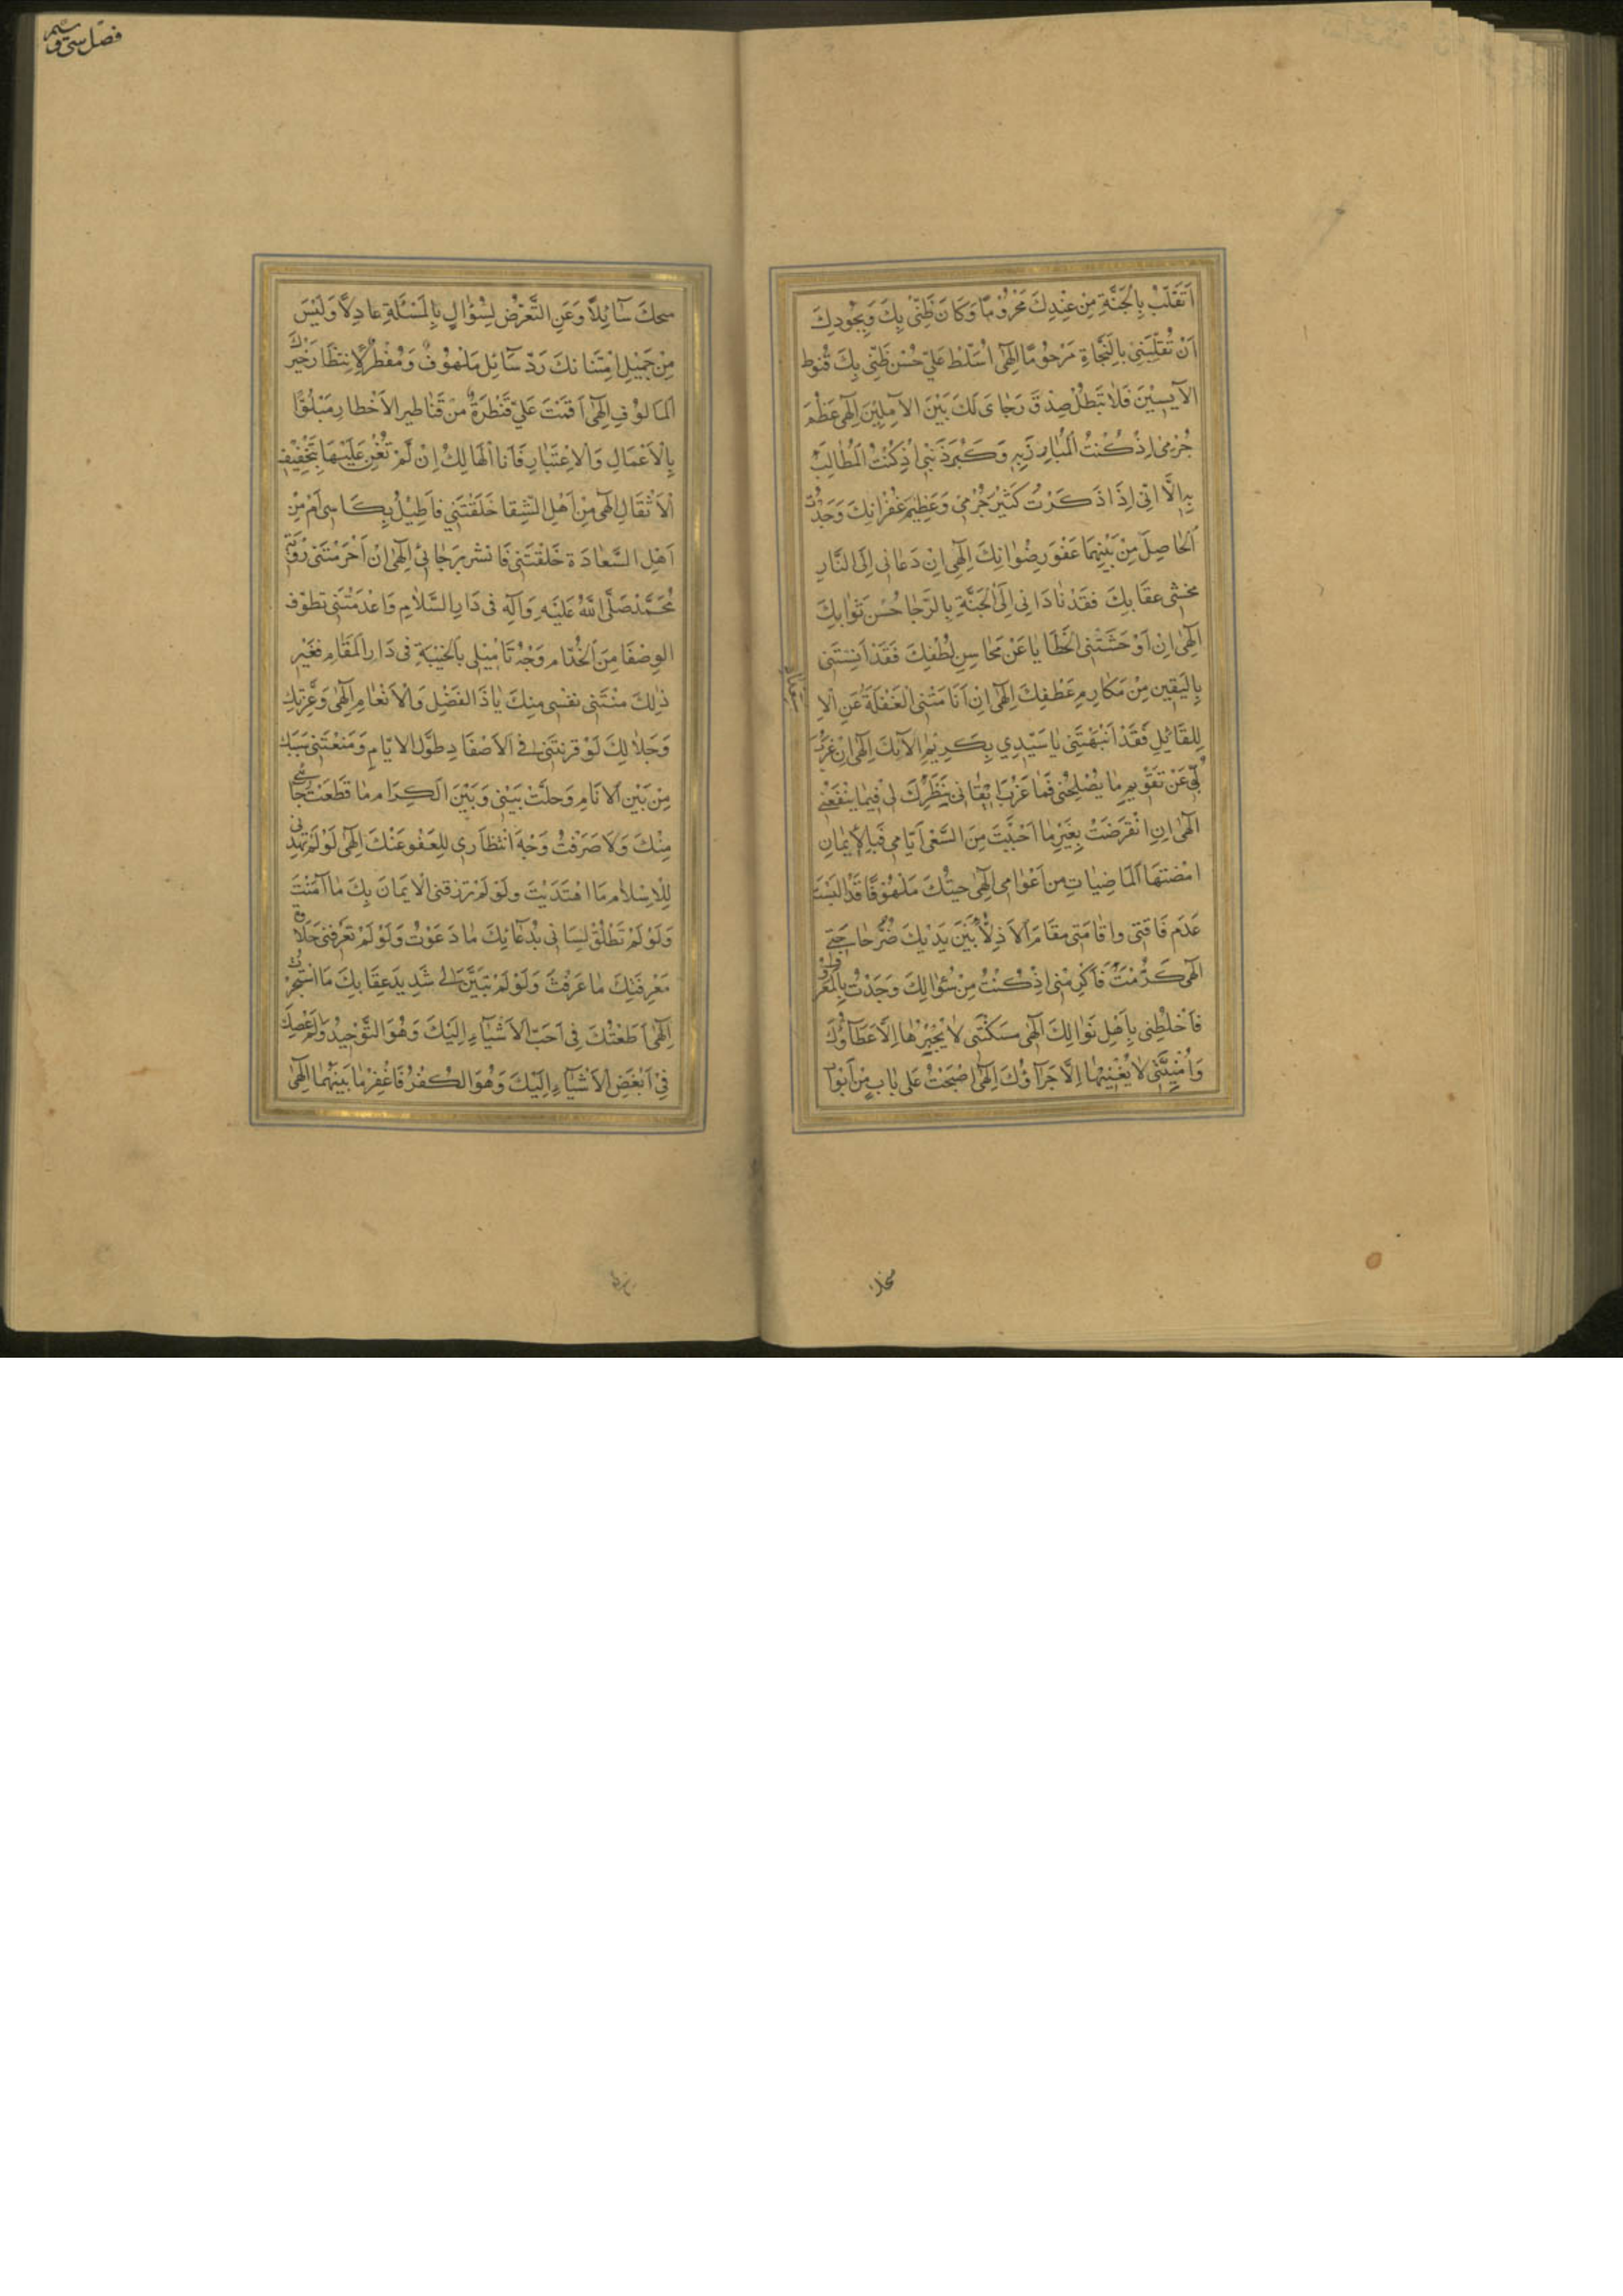 اَنْقَلِبْ بِالْجَنَّةِ مِنْ عِنْدِكَ مَحْرُوْمًا وَكَانَ ظَنِّىْ بِكَ وَبِجُودِكَ
اَنْ تُقَلِّبَنِىْ بِالنَّجَاةِ مَرْحُوْمًا اِلٰهِىْ اُسَلِّط عَلىٰ حُسْنِ ظَنِّىْ بِكَ قُنُوطَ
الآيِسِيْنَ فَلَا تَبْطُلْ صِدْقَ رَجَاىَ لَكَ بَيْنَ الآمِلِيْنَ اِلٰهِى عَظُمَ
جُرْمِىْ اِذْ كُنْتُ الْمُبَارِزَ بِهِ وَكَبُرَ ذَنْبِىْ اِذْ كُنْتُ الْمُطَالِبَ
بِهِ اِلَّا اَنِّى اِذَا ذَكَرْتُ كَثِيْرَ جُرْمِىْ وَعَظِيْمَ غُفْرَانِكَ وَجَدْتُ
الْحَاصِلَ مِنْ بَيْنِهِمَا عَفْوَ رِضْوَانِكَ اِلٰهِى اِنْ دَعَانِى اِلَى النَّارِ
مخشى عِقَابِكَ فَقَدْ نَادَانِى اِلَى الْجَنَّةِ بِالرَّجَا حُسْنَ ثَوَابِكَ
اِلٰهِى اِنْ اَوْحَشَتْنِى الْخَطَايَا عَنْ مَحَاسِنِ لُطْفِكَ فَقَدْ اَنِسَتْنِى
بِالْيَقِينِ مِنْ مَكَارِمِ عَطْفِكَ اِلٰهِى اِنْ اَنَامَتْنِى الْغَفْلَةُ عَنِ الْاِ
سْتِعْدَادِ
لِلِقَائِكَ فَقَدْ اَنْبَهَتْنِى يَا سَيِّدِي بِكَرِيْمِ الآئِكَ اِلٰهِى اِنْ عَزَبَ
لُبِّى عَنْ تَقْوِيمِ مَا يُصْلِحُنِى فَمَا عَزَبَ اِيْقَانِى بِنَظَرِكَ لِى فِيْمَا يَنْفَعُنِى
اِلٰهِى اِنِ انْقَرَضَتْ بِغَيْرِ مَا اَحْبَبْتَ مِنَ السَّعْىِ اَيَّامِى فَبِالْاِيْمَانِ
امْضَتهَا الْمَاضِيَاتِ مِن اَعْوَامِى اِلٰهِى جِئْتُكَ مَلْهُوْفًا قَدْ اُلْبِسْتُ
عَدَمَ فَاقَتِى وَاقَامَتِى مَقَامَ الاَذِلَّاءِ بَيْنَ يَدَيْكَ ضُرُّ حَاجَتِى
اِلٰهِى كَرُمْتَ فَاَكْرِمْنِى اِذْ كُنْتُ مِنْ سُؤَالِكَ وَجُدْتَ بِالْمَعْرُوْفِ
فَاَخْلِطْنِى بِاَهْلِ نَوَالِكَ اِلٰهِى مَسْكَنَتِى لَا يُجْبِرُهَا اِلَّا عَطَآؤُكَ
وَاُمْنِيَّتِى لَا يُغْنِيهَا اِلَّا جَزَآؤُكَ اِلٰهِى اَصْبَحْتُ عَلٰى بَابٍ مِنْ اَبْوَا
منحك
فصل سى و
منحكَ سَآئِلًا وَعَنِ التَّعَرُّضِ لِسُؤَالٍ بِالْمَسْئَلَةِ عَادِلًا وَلَيْسَ
مِنْ جَمِيْلِ امْتِنَانِكَ رَدّ سَآئِلٍ مَلْهُوْفٍ وَمُضْطَرٍّ لِاِنْتِظَارِ خَيْرِكَ
الْمَالُوْفِ اِلٰهِى اَقَمْتَ عَلىٰ قَنْطَرَةٍ مِنْ قَنَاطِيرِ الاَخْطَارِ مَبْلُوًّا
بِالْاَعْمَالِ وَالْاِعْتِبَارِ فَاَنَا الْهَالِكُ اِنْ لَمْ تُعِنْ عَلَيْهَا بِتَخْفِيْفِ
الْاَثْقَالِ اِلٰهِى مِنْ اَهْلِ الشَّقَا خَلَقْتَنِى فَاُطِيْلُ بُكَائِى اَمْ مِنْ
اَهْلِ السَّعَادَةِ خَلَقْتَنِى فَانشر برَجَائِى اِلٰهِى اِنْ اَحْرَمْتَنِى رُؤْيَةَ
مُحَمَّدٍ صَلَّى اللّٰهُ عَلَيْهِ وَآلِهِ فِى دَارِ السَّلَامِ وَاَعْدَمْتَنِى تَطَوُّفَ
الوِصْفَا مِنَ الْخُدَّامِ وَجْهُ تَامِيلِى بِالْخَيْبَةِ فِى دَارِ الْمَقَامِ فَغَيْرَ
ذٰلِكَ مَنَّتْنِى نَفْسِى مِنْكَ يَا ذَا الْفَضْلِ وَالْاَنْعَامِ اِلٰهِى وَعِزَّتِكَ
وَجَلَالِكَ لَوْ قَرَنْتَنِى فِى الْاَصْفَادِ طُوْلَ الْاَيَّامِ وَمَنَعْتَنِى سَيْبَكَ
مِنْ بَيْنِ الْاَنَامِ وَحُلْتَ بَيْنِى وَبَيْنَ الْكِرَامِ مَا قَطَعْتُ رَجَائِى
مِنْكَ وَلَا صَرَفْتُ وَجْهَ انْتِظَارِى لِلْعَفْوِ عَنْكَ اِلٰهِى لَوْ لَمْ تَهْدِنِى
لِلْاِسْلَامِ مَا اهْتَدَيْتُ وَلَوْ لَمْ تَرْزُقْنِى الْاِيمَانَ بِكَ مَا آمَنْتُ
وَلَوْ لَمْ تُطْلِقْ لِسَانِى بِدُعَائِكَ مَا دَعَوْتُ وَلَوْ لَمْ تُعَرِّفْنِى حَلَاوَةَ
مَعْرِفَتِكَ مَا عَرَفْتُ وَلَوْ لَمْ تُبَيِّنْ لِى شَدِيدَ عِقَابِكَ مَا اسْتَجَرْتُ
اِلٰهِى اَطَعْتُكَ فِى اَحَبِّ الْاَشْيَآءِ اِلَيْكَ وَهُوَ التَّوْحِيْدُ وَلَمْ اَعْصِكَ
فِى اَبْغَضِ الْاَشْيَآءِ اِلَيْكَ وَهُوَ الْكُفْرُ فَاغْفِرْ مَا بَيْنَهُمَا اِلٰهِى